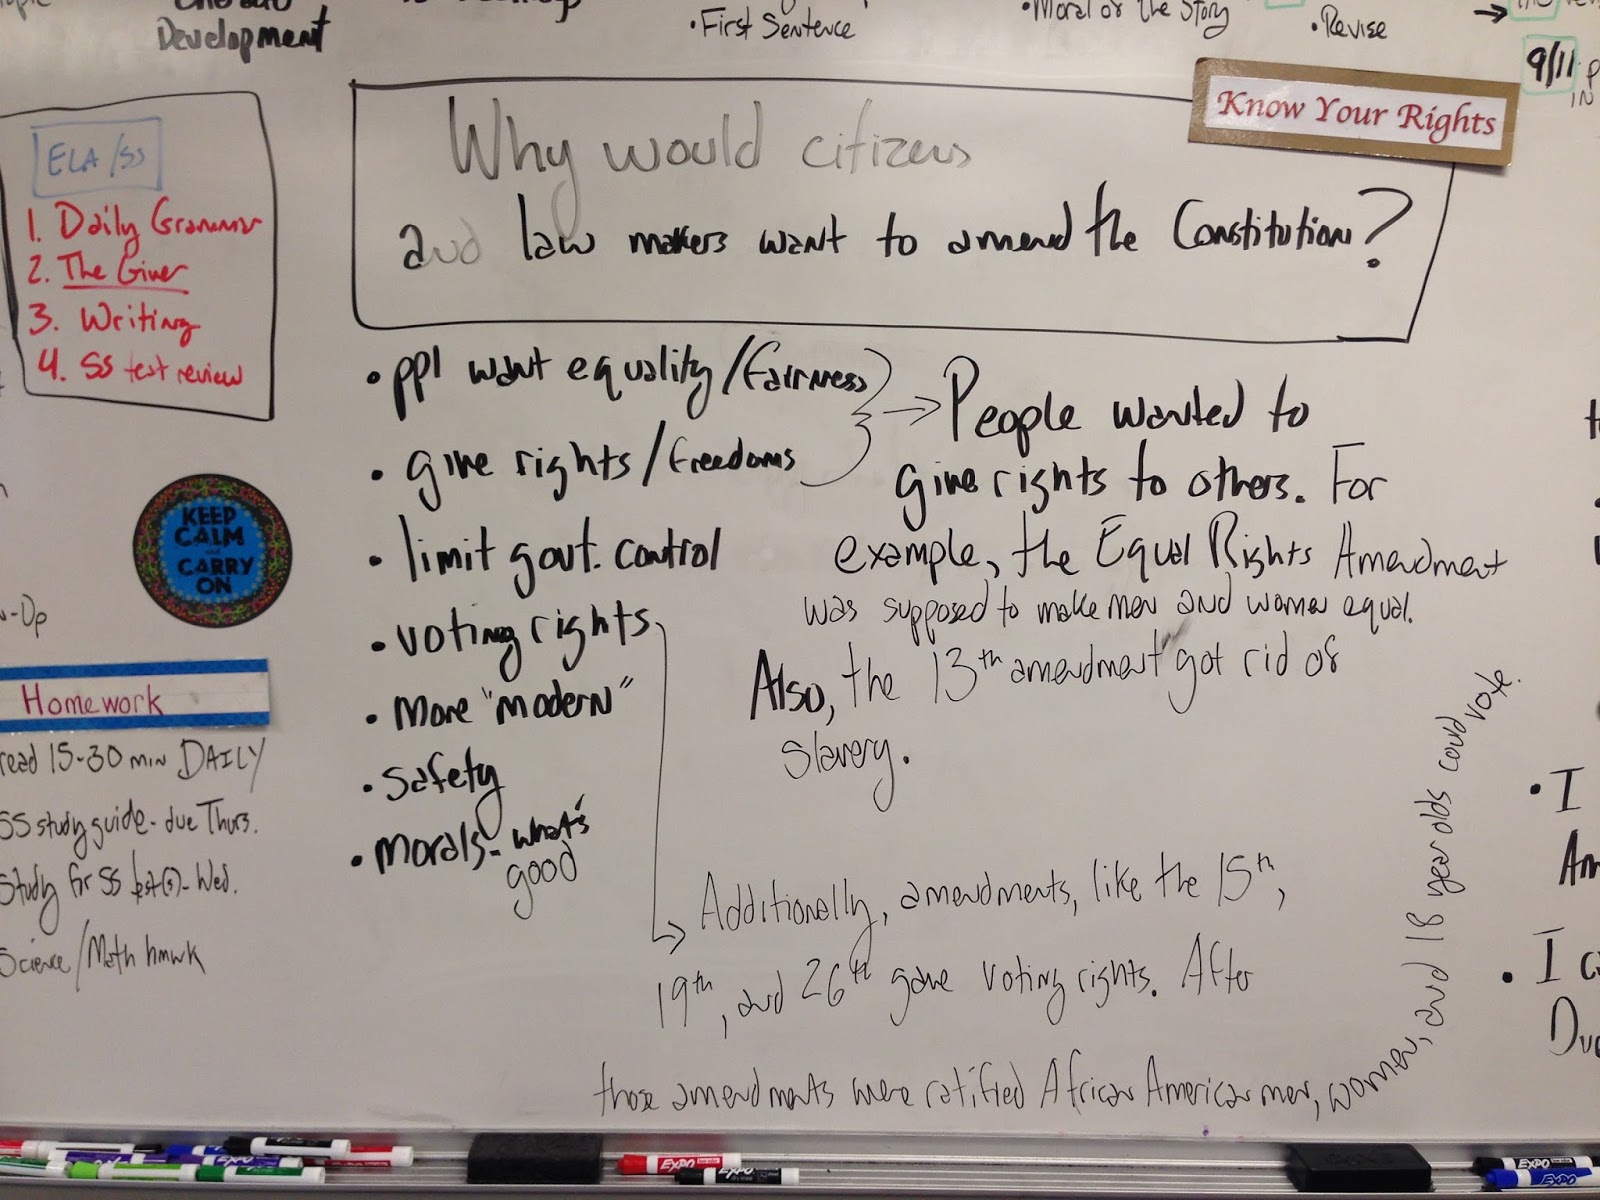 Development
• First Sentence
• Moral of the Story
• Revise
→
9/11
IN
Know Your Rights
Why would citizens
and law makers want to amend the Constitution?
ELA/SS
1. Daily Grammar
2. The Giver
3. Writing
4. SS test review
• ppl want equality/fairness
• give rights/freedoms
• limit govt. control
• voting rights
• more "modern"
• safety
• morals - what's
good
→ People wanted to
give rights to others. For
example, the Equal Rights Amendment
was supposed to make men and women equal.
Also, the 13th amendment got rid of
slavery.
→ Additionally, amendments, like the 15th,
19th, and 26th gave voting rights. After
those amendments were ratified African American men, women, and 18 year olds could vote.
KEEP
CALM
and
CARRY
ON
-Up
Homework
read 15-30 min DAILY
SS study guide - due Thurs.
Study for SS test(s) - Wed.
Science/Math hmwk
• I
Am
• I
Du
EXPO
EXPO
EXPO
EXPO
EXPO
EXPO